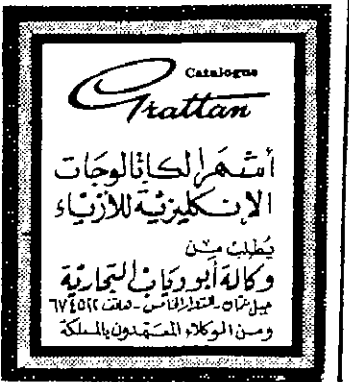 Catalogue
Grattan
أشهر الكاتالوجات
الإنكليزية للأزياء
يُطلب من
وكالة أبو دياب التجارية
جبل عمان - الدوار الخامس - هاتف ٦٧٤٥٢٢
ومن الوكلاء المعتمدون بالمملكة